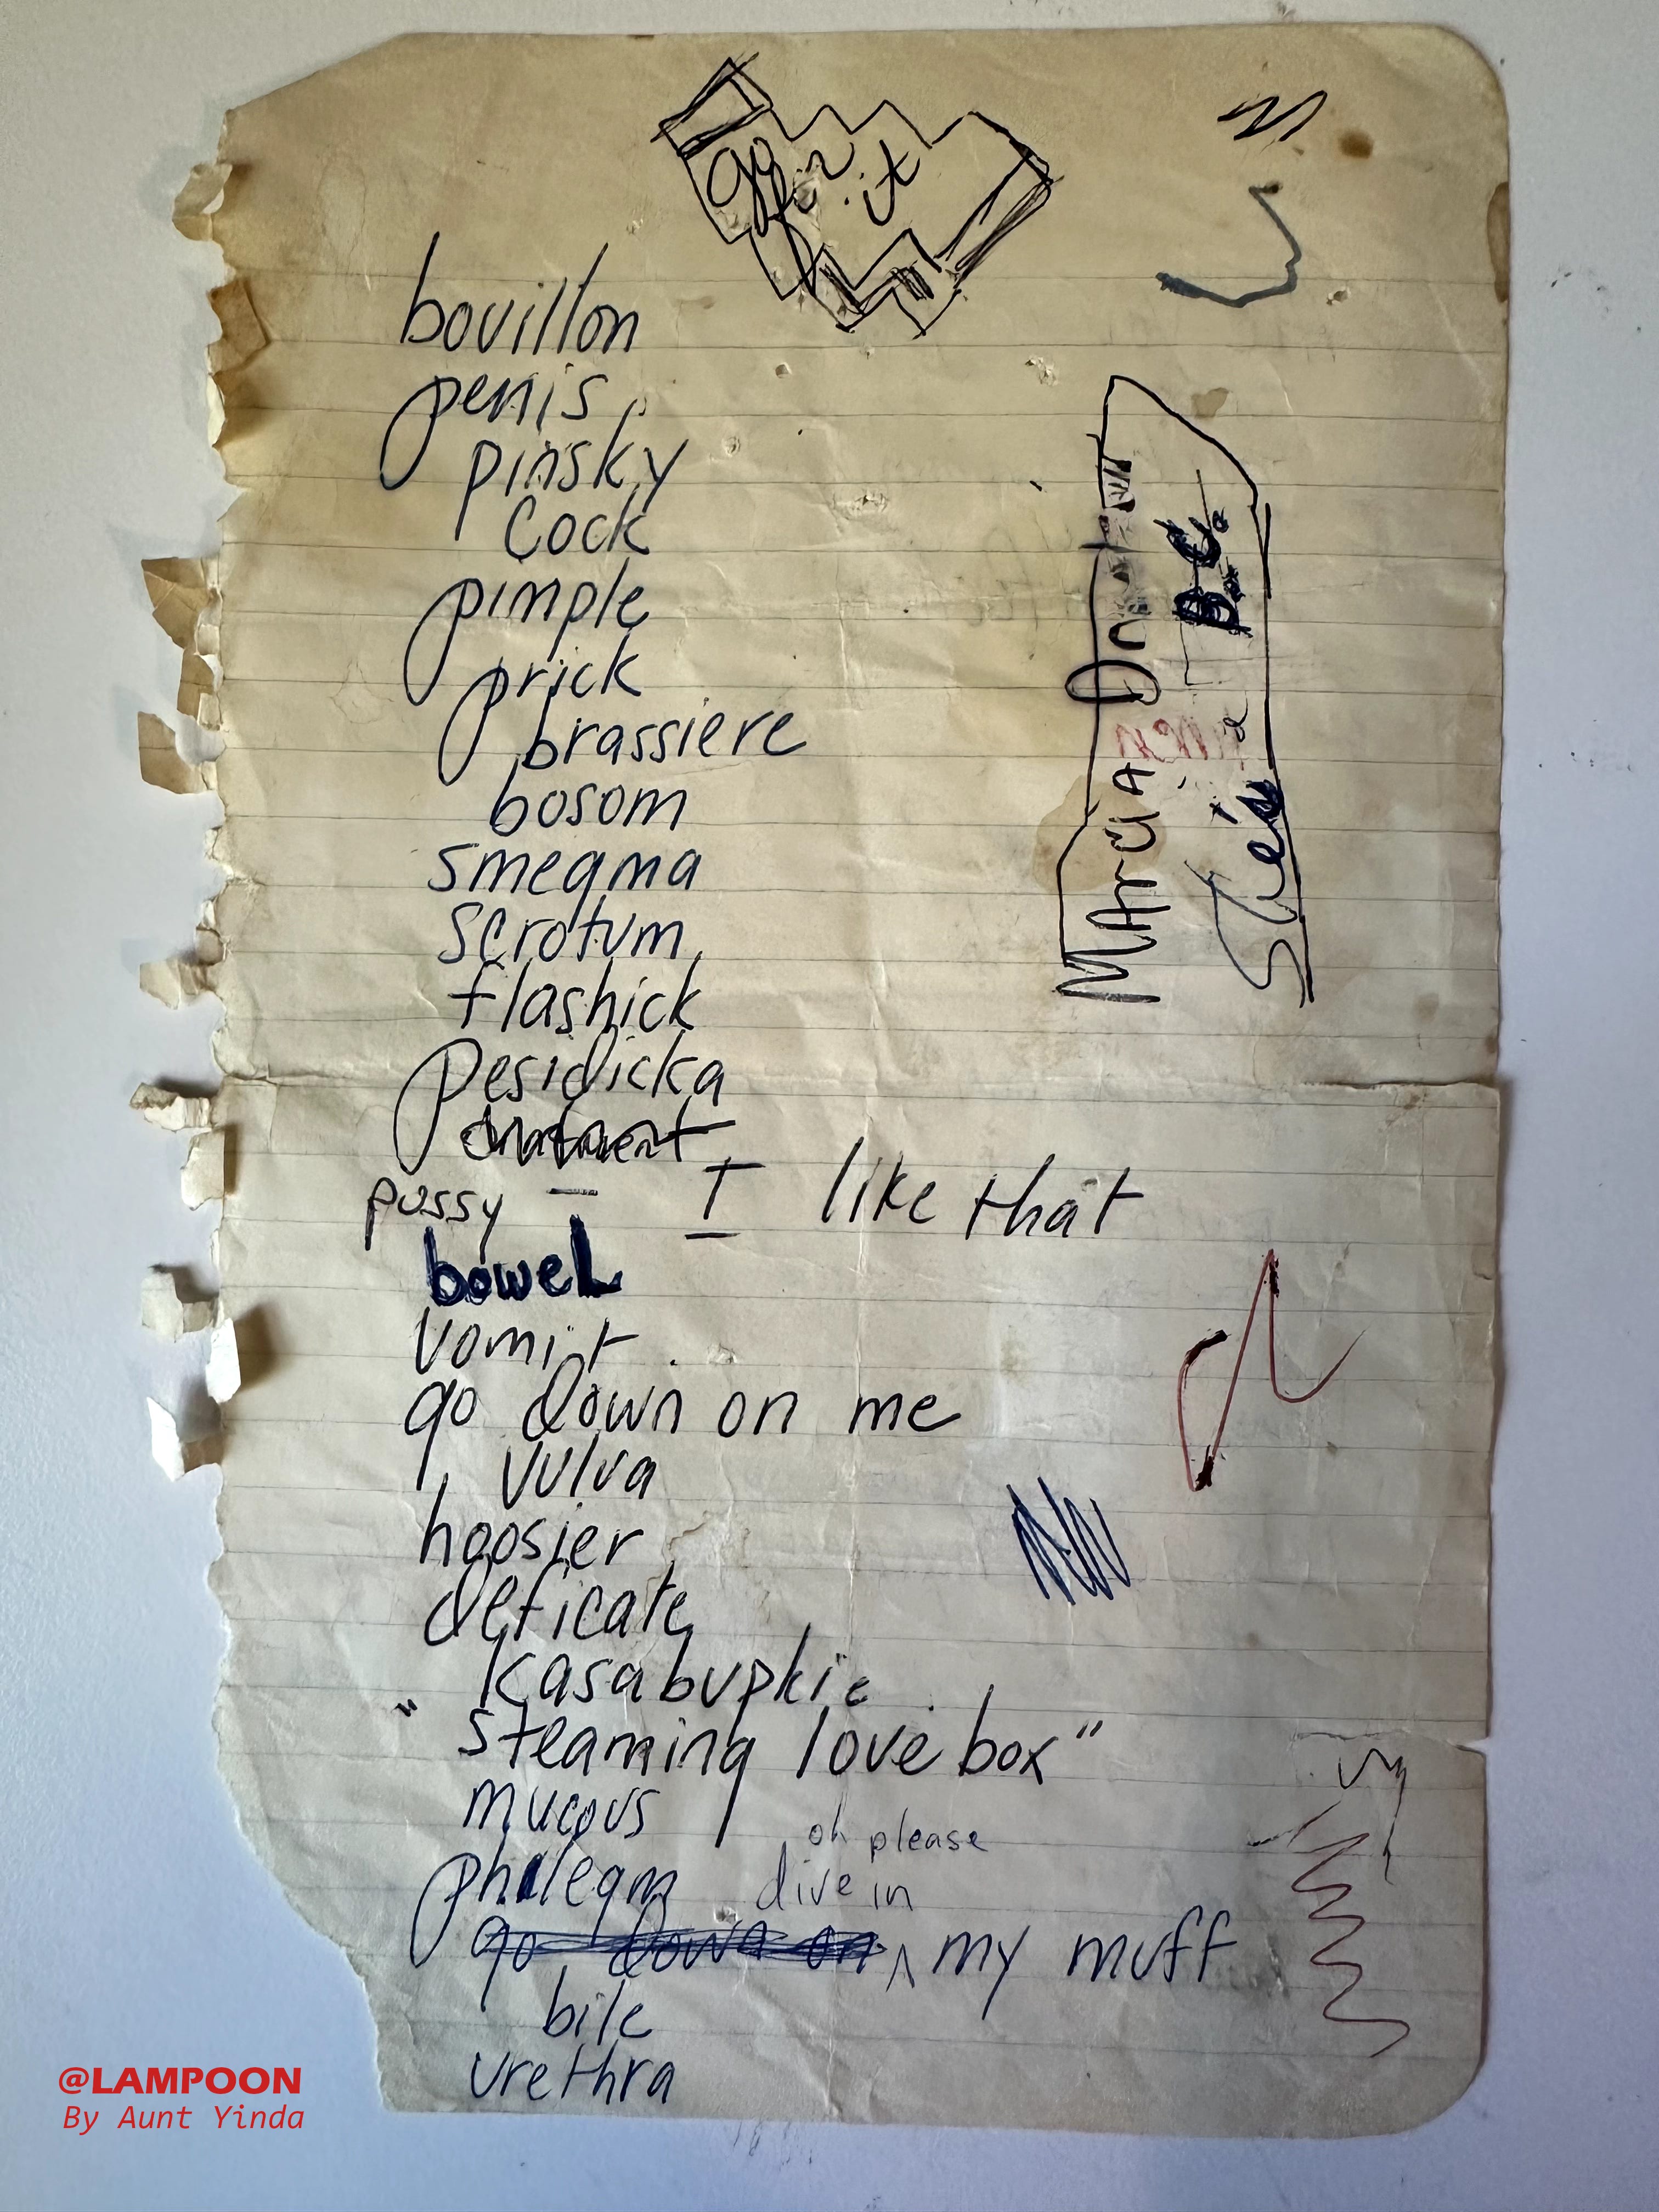 go for it
bouillon
penis
pinsky
Cock
pimple
prick
brassiere
bosom
smegma
scrotum
flashick
pesidicka
pussy - I like that
bowel
vomit
go down on me
vulva
hoosier
deficate
Kasabupkie
"steaming love box"
mucous
phlegm
oh please
dive in
go down on ^ my muff
bile
urethra
B.C.
@LAMPOON
By Aunt Yinda